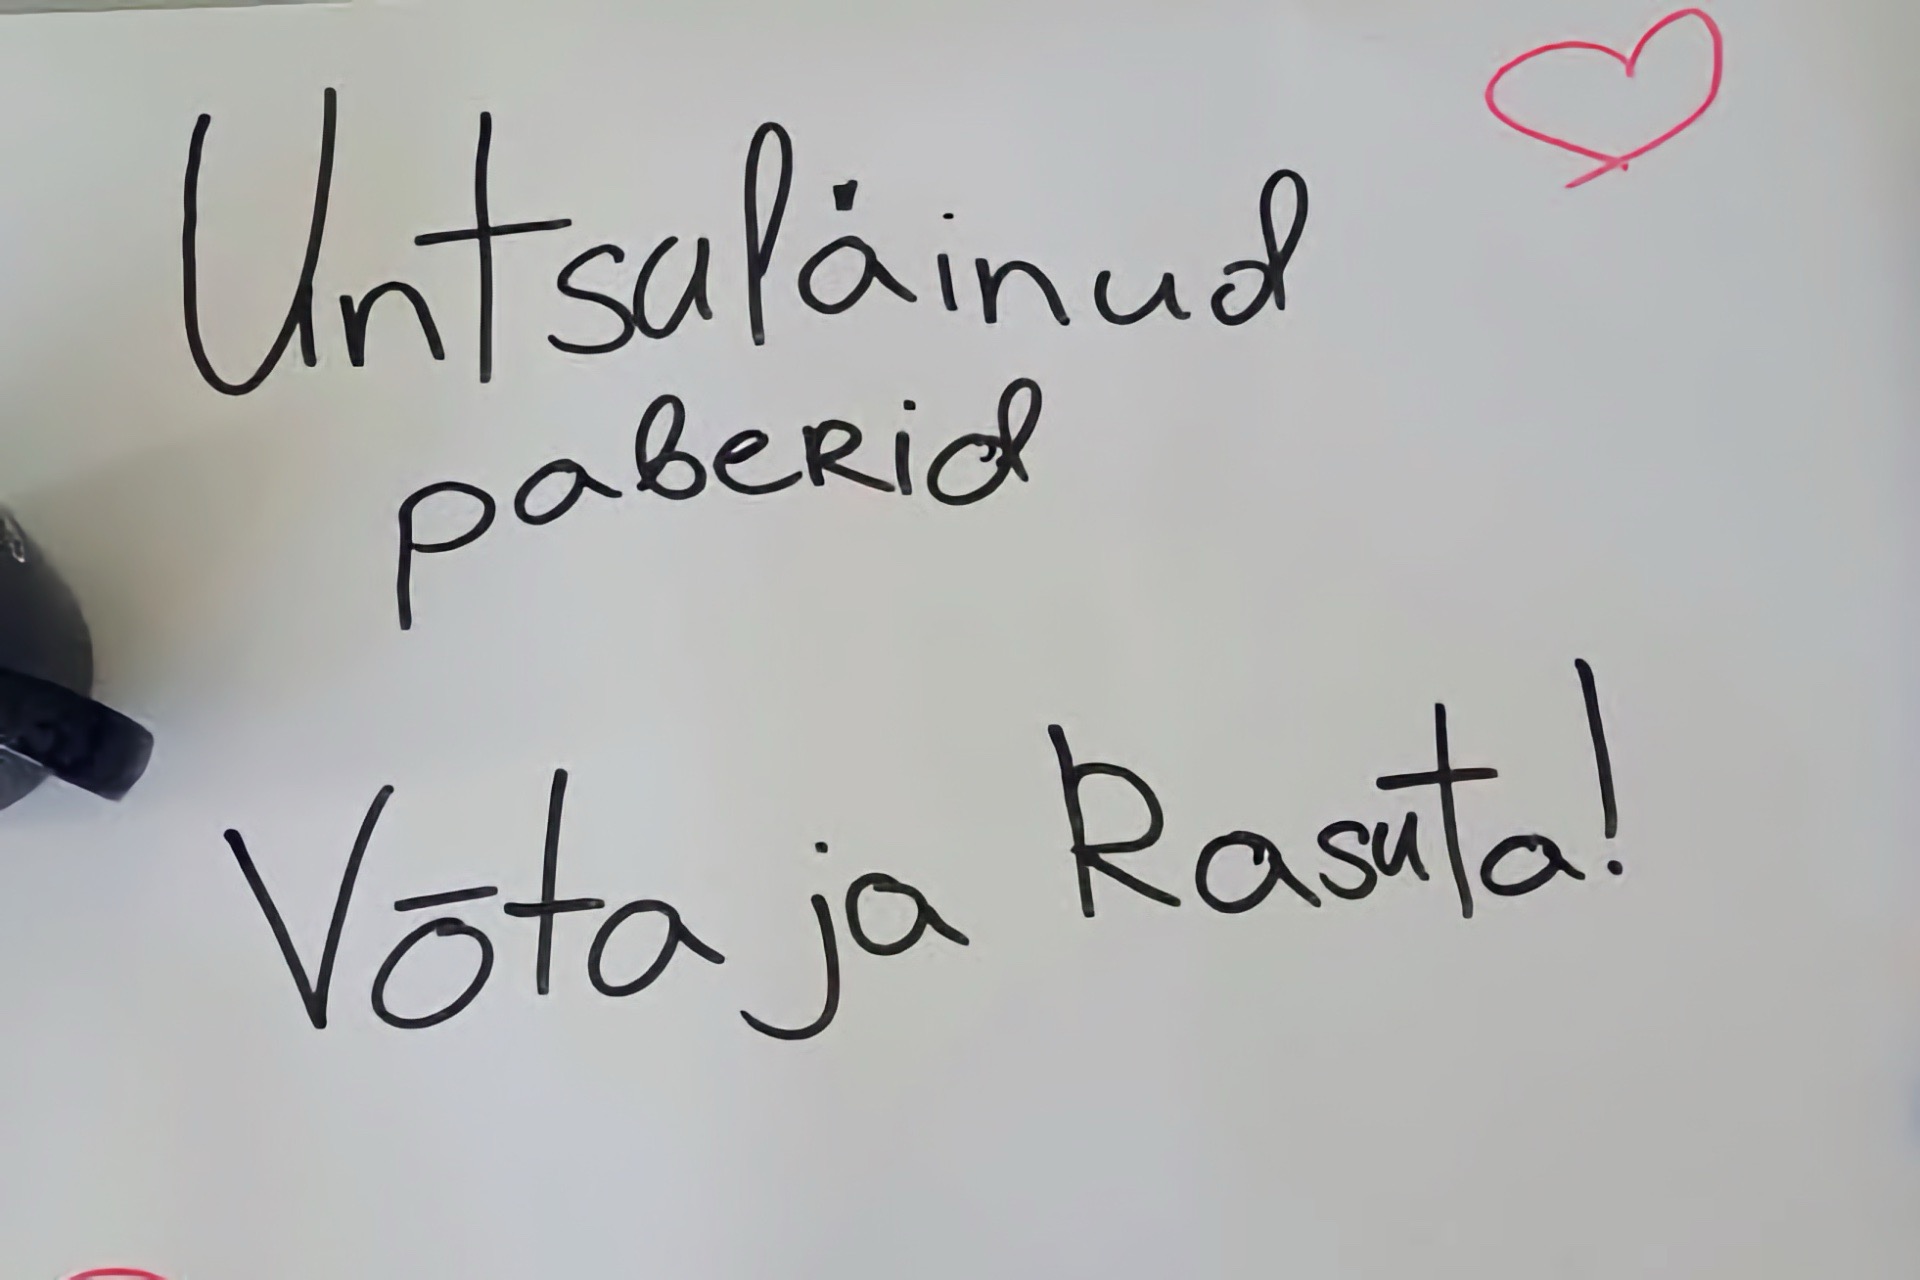 Untsuläinud
paberid
Võta ja Rasuta!